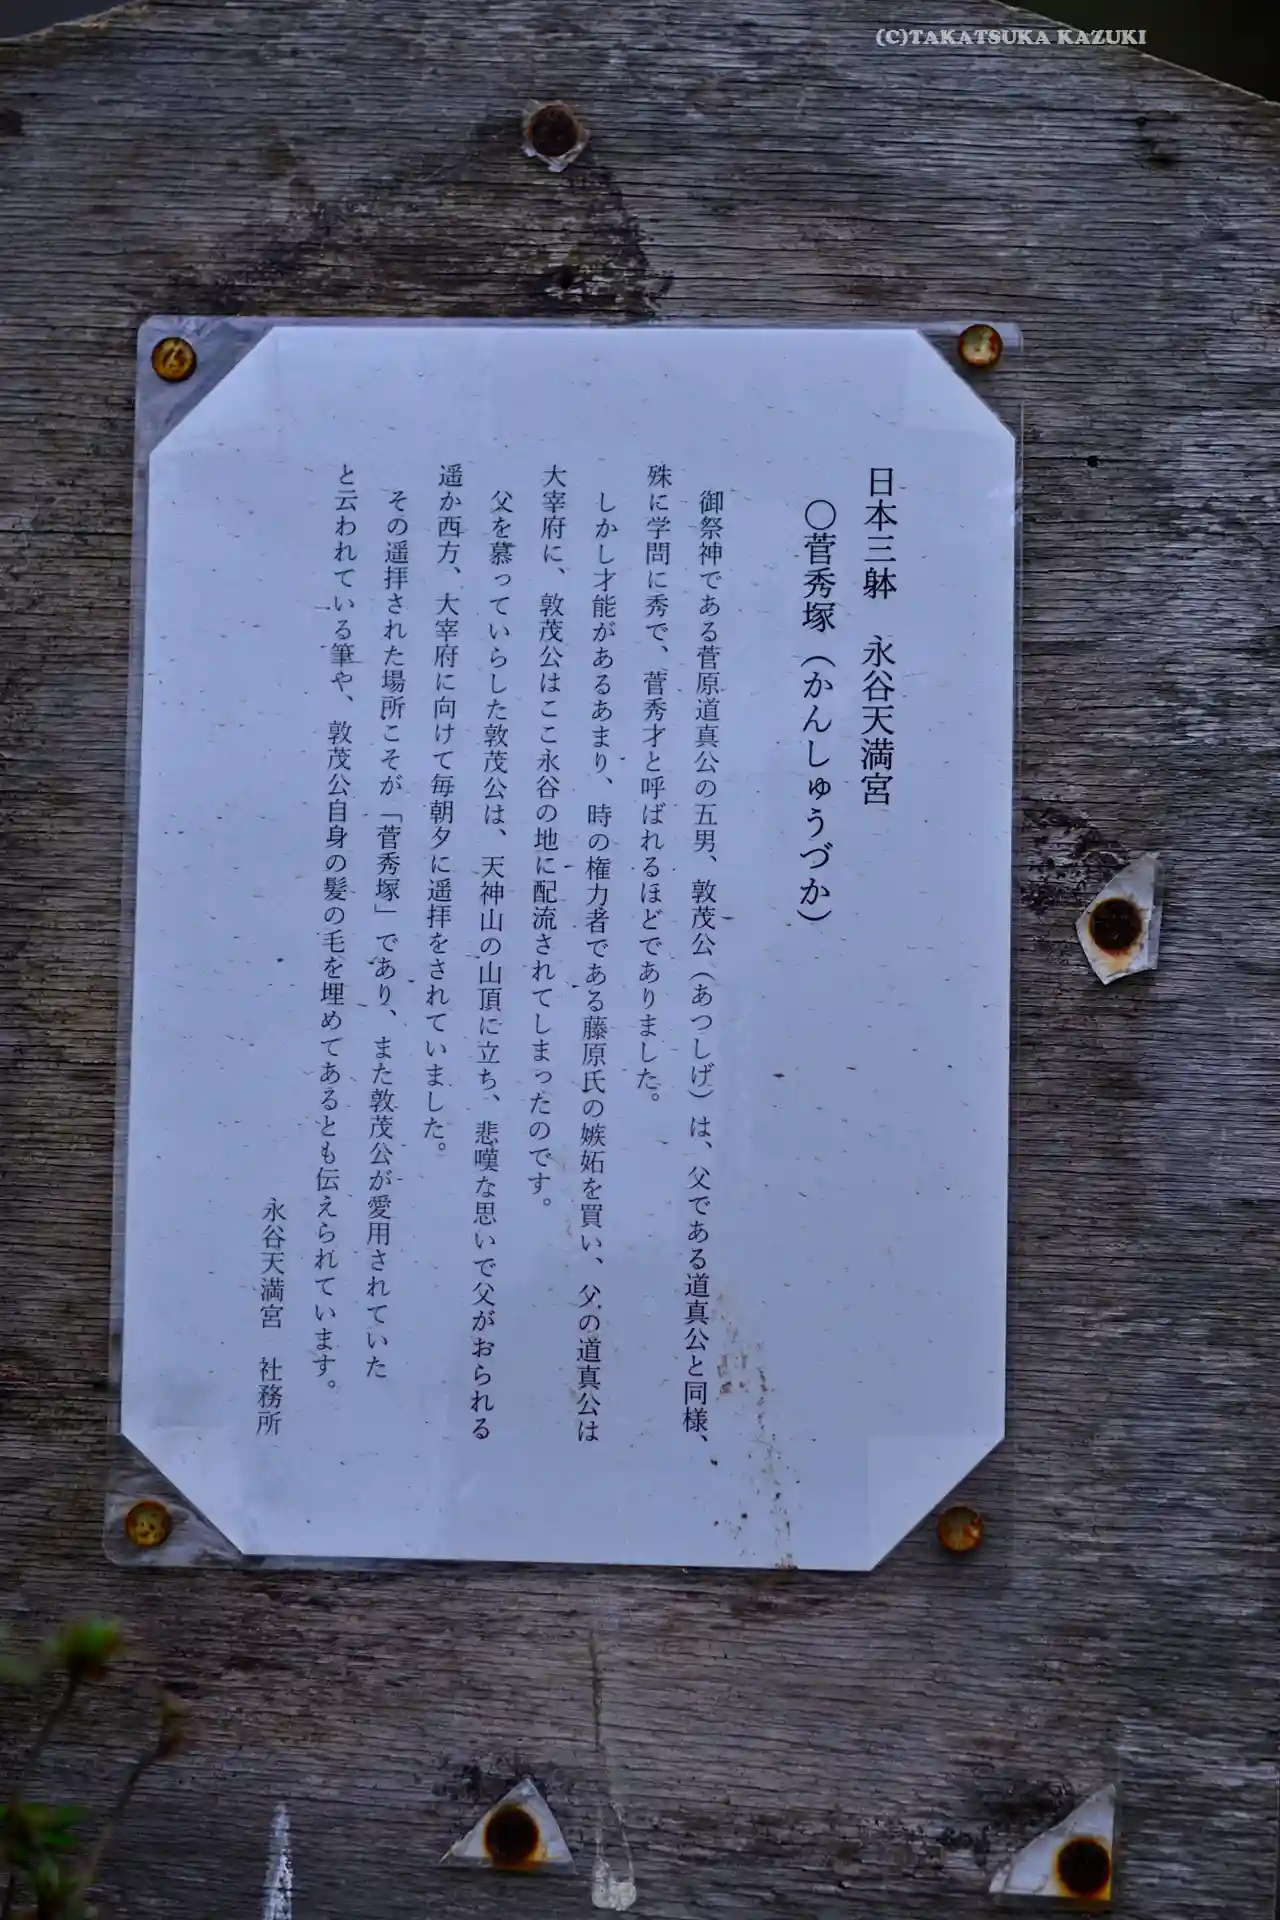 (C)TAKATSUKA KAZUKI
日本三躰　永谷天満宮
〇菅秀塚（かんしゅうづか）
御祭神である菅原道真公の五男、敦茂公（あつしげ）は、父である道真公と同様、
殊に学問に秀で、菅秀才と呼ばれるほどでありました。
しかし才能があるあまり、時の権力者である藤原氏の嫉妬を買い、父の道真公は
大宰府に、敦茂公はここ永谷の地に配流されてしまったのです。
父を慕っていらした敦茂公は、天神山の山頂に立ち、悲嘆な思いで父がおられる
遥か西方、大宰府に向けて毎朝夕に遥拝をされていました。
その遥拝された場所こそが「菅秀塚」であり、また敦茂公が愛用されていた
と云われている筆や、敦茂公自身の髪の毛を埋めてあるとも伝えられています。
永谷天満宮　社務所